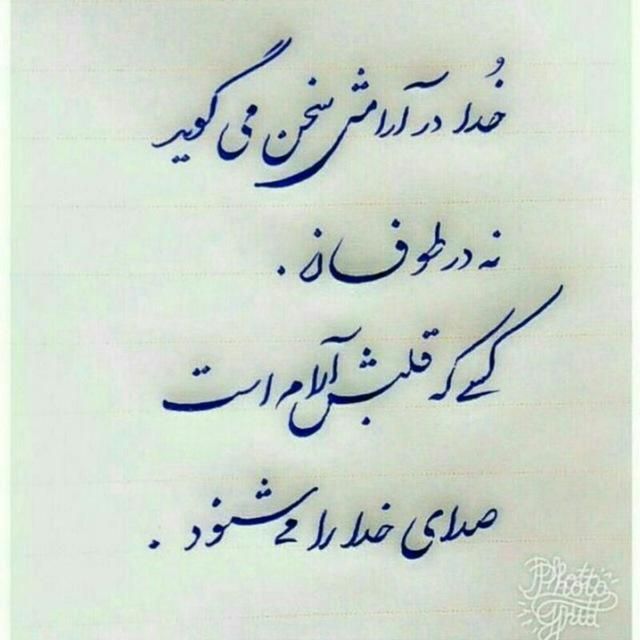 خُدا در آرامش سخن می گوید
نه در طوفان .
کسی که قلبش آرام است
صدای خدا را می شنود .
Photo
Grid